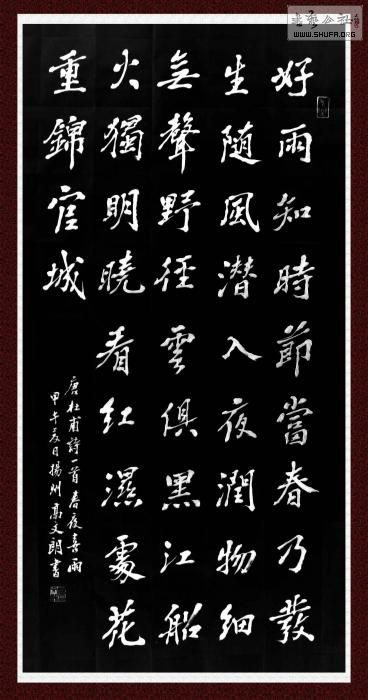 好雨知時節當春乃發
生随風潜入夜潤物細
無聲野徑雲俱黑江船
火獨明曉看紅濕處花
重錦官城
唐杜甫詩一首春夜喜雨
甲午夏日揚州高文朗書
書藝公社
WWW.SHUFA.ORG